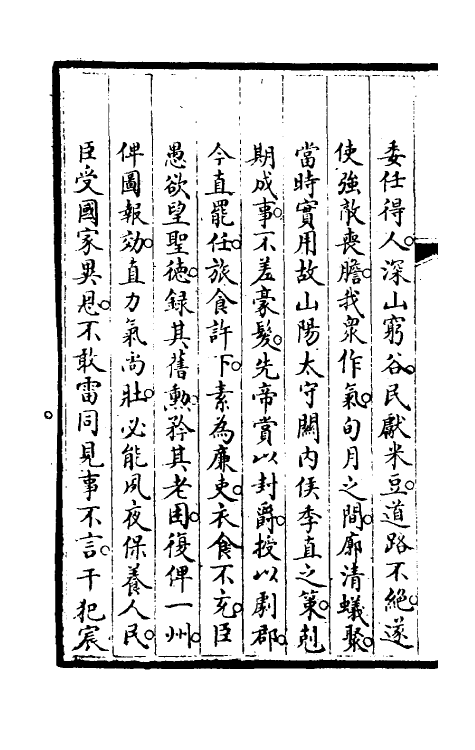 委任得人深山窮谷民獻米豆道路不絶遂
使強敵喪膽我衆作氣旬月之間廓清蟻聚
當時實用故山陽太守關内侯李直之策剋
期成事不差豪髮先帝賞以封爵授以劇郡
今直罷任旅食許下素為廉吏衣食不充臣
愚欲望聖徳録其舊勲矜其老困復俾一州
俾圖報効直力氣尚壯必能夙夜保養人民
臣受國家異恩不敢雷同見事不言干犯宸